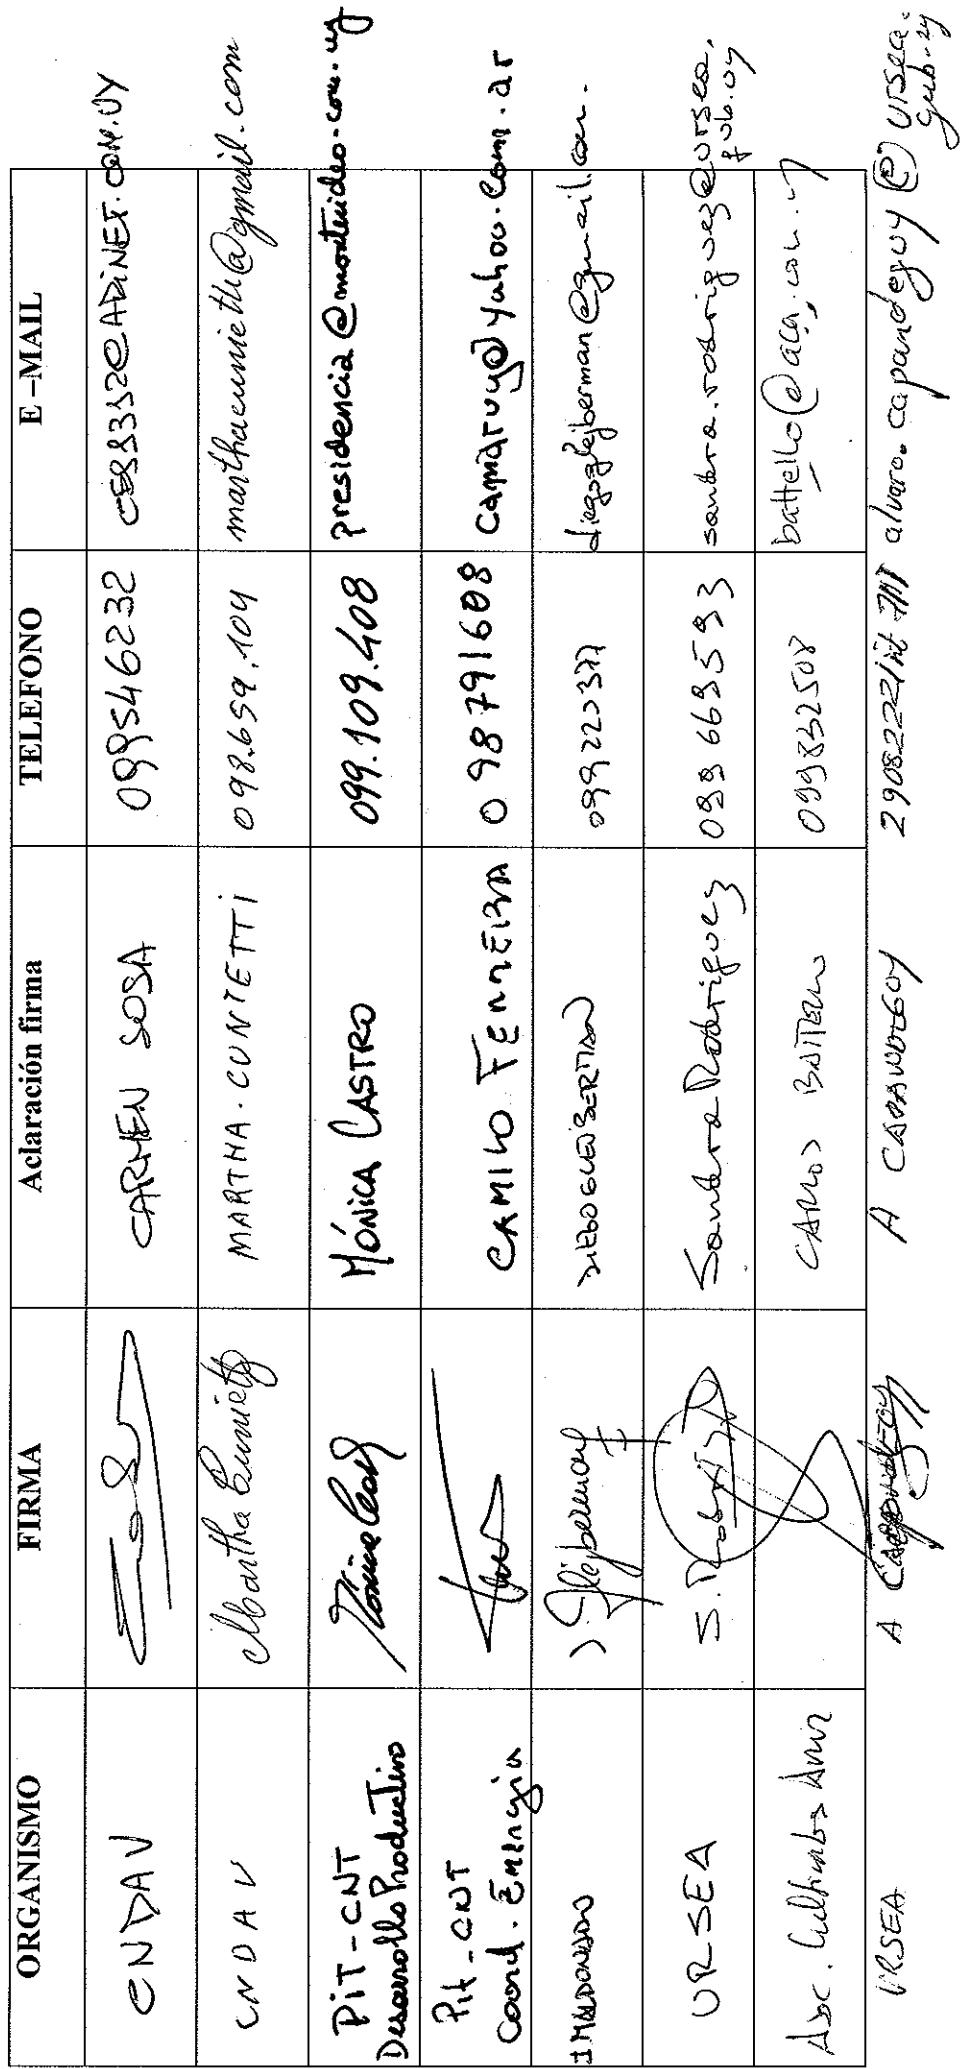 ORGANISMO FIRMA Aclaración firma TELEFONO E-MAIL
CNDAV CARMEN SOSA 099546232
CNDAV Martha Cunietti MARTHA. CUNIETTI 098.659.104 marthacunietti@gmail.com
PiT-CNT
Desarrollo Productivo MÓNICA CASTRO 099.109.408 presidencia@montevideo.com.uy
Pit-CNT
Coord. Energia CAMILO FERREIRA 098791608 camaruy@yahoo.com.ar
I MALDONADO DIEGO GLEJBERMAN diegoglejberman@gmail.com.
URSEA S. Rodríguez Sandra Rodriguez 099669593 sandra.rodriguez@ursea.
gub.uy
Asoc. Cultivadores CARLOS BATTELLO 099832508 battello@
URSEA A CAPANDEGUY A CAPANDEGUY 29082221 int 711 alvaro.capandeguy@ursea.
gub.uy